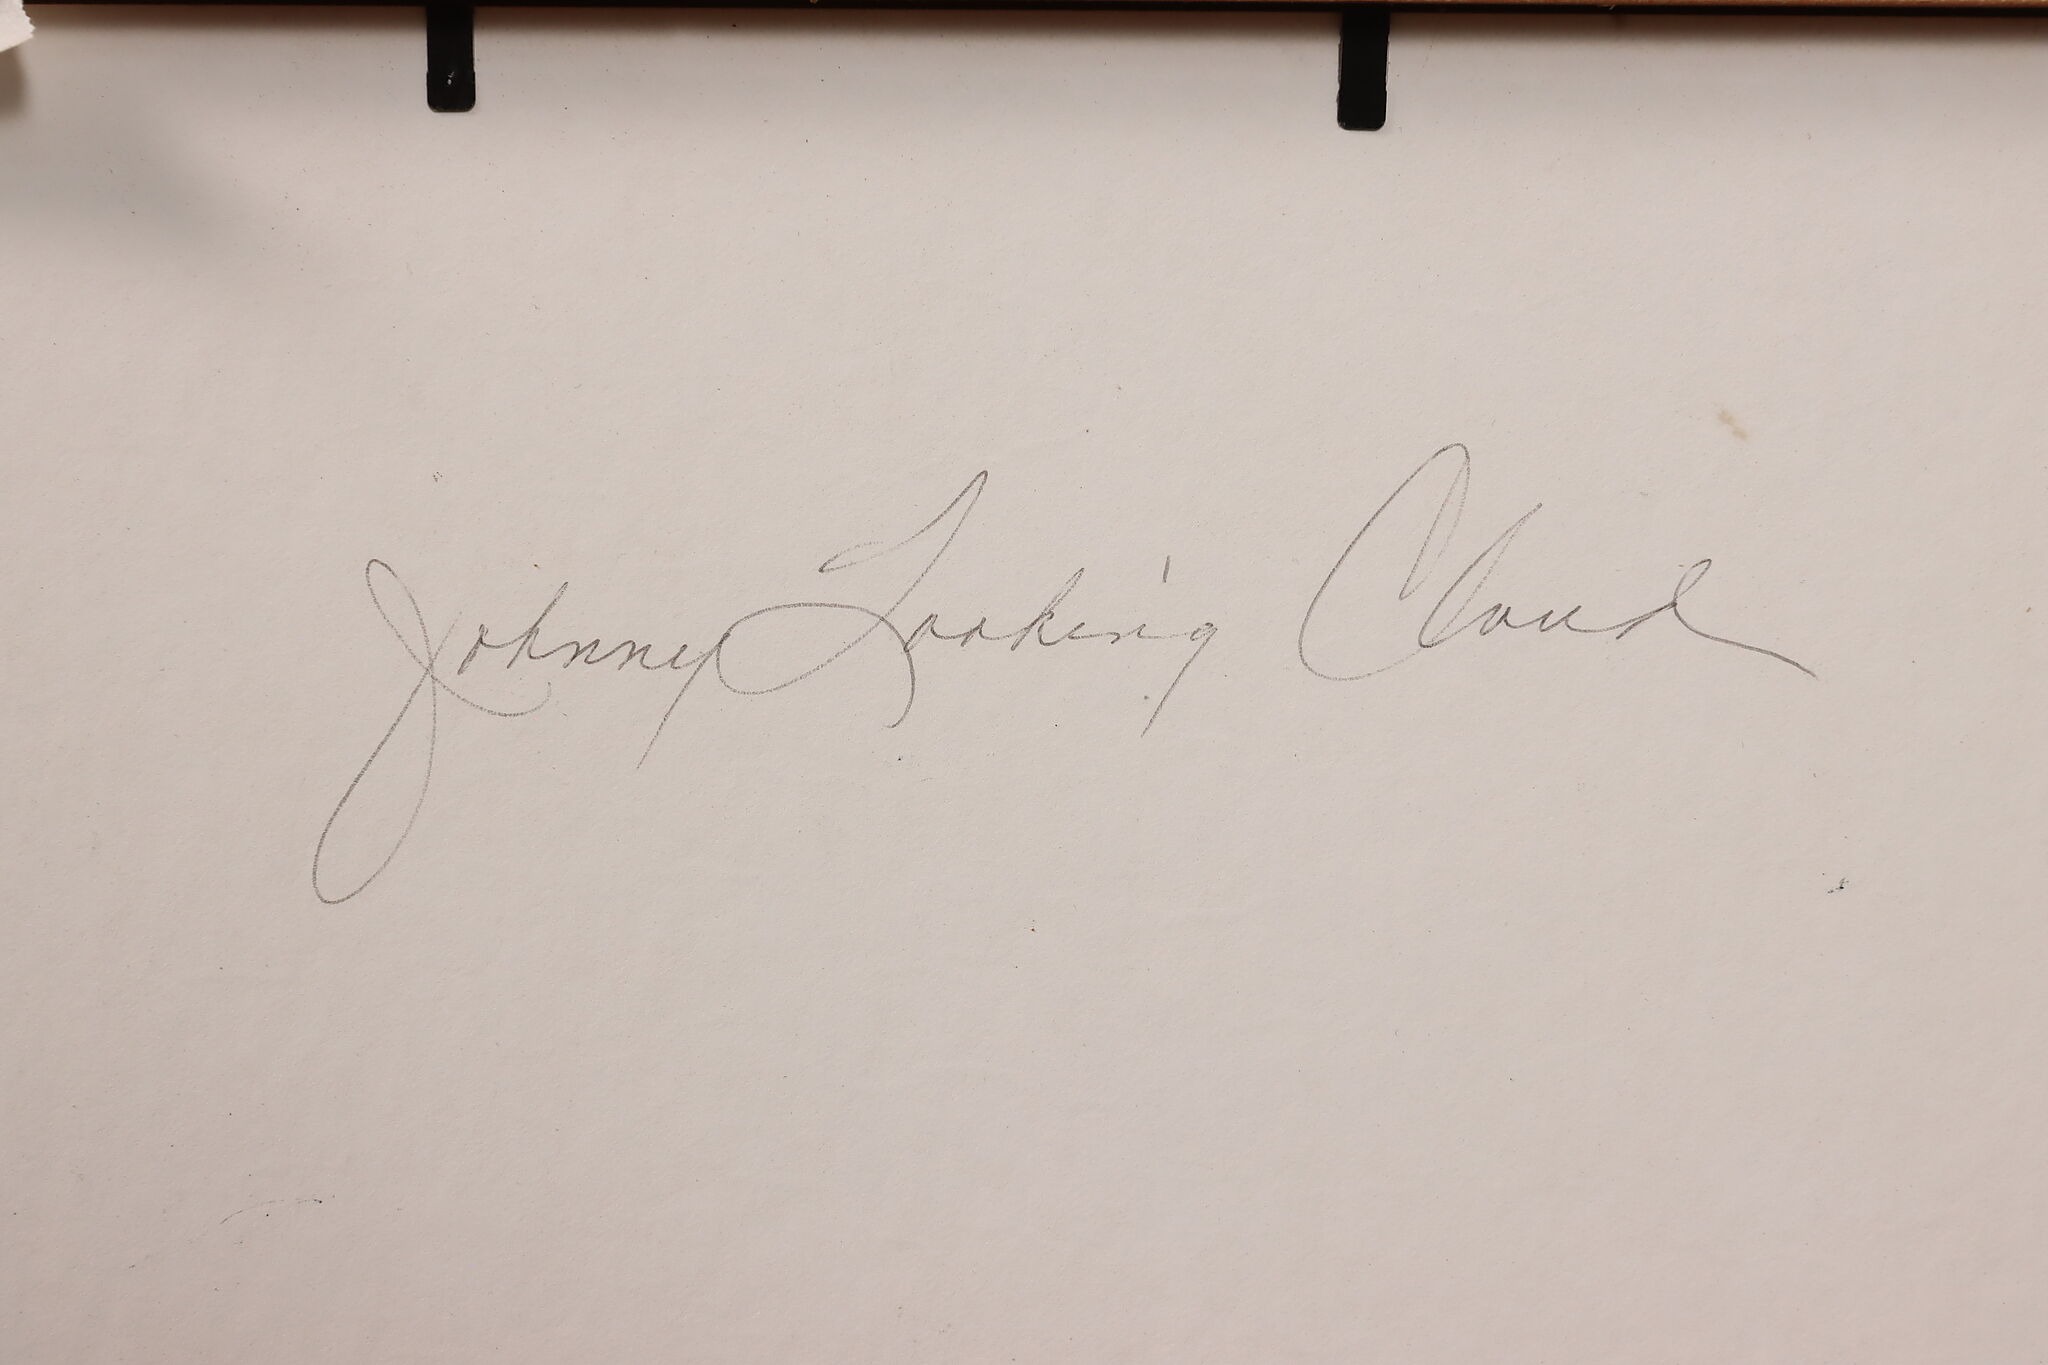 Johnny Looking Cloud